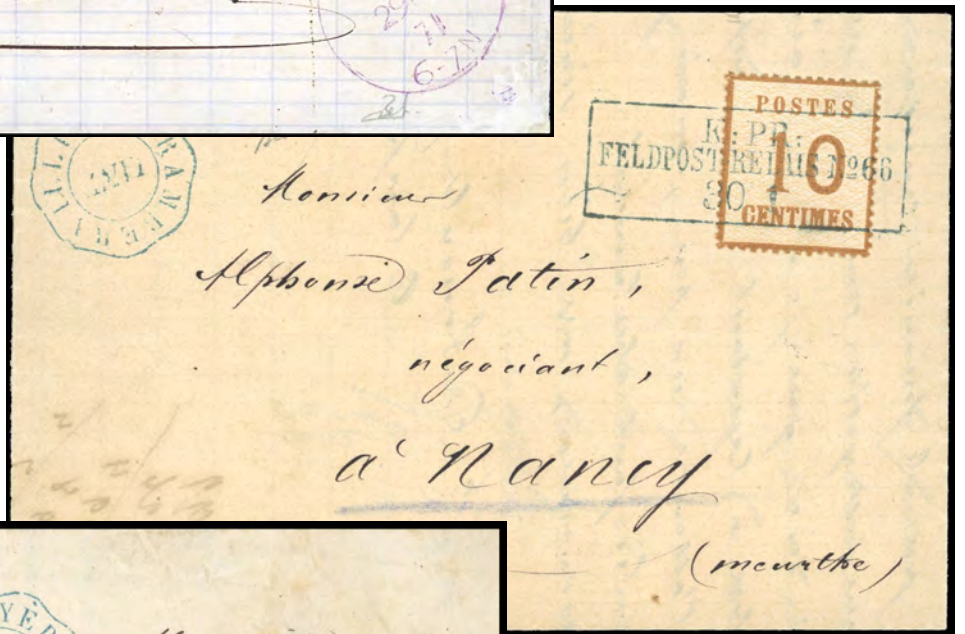 29
71
6-7N
POSTES
10
CENTIMES
K: PR:
FELDPOST RELAIS No 66
30
RAMBERVILLE
Monsieur
Alphonse Patin,
négociant,
à Nancy
(meurthe)
YÈ